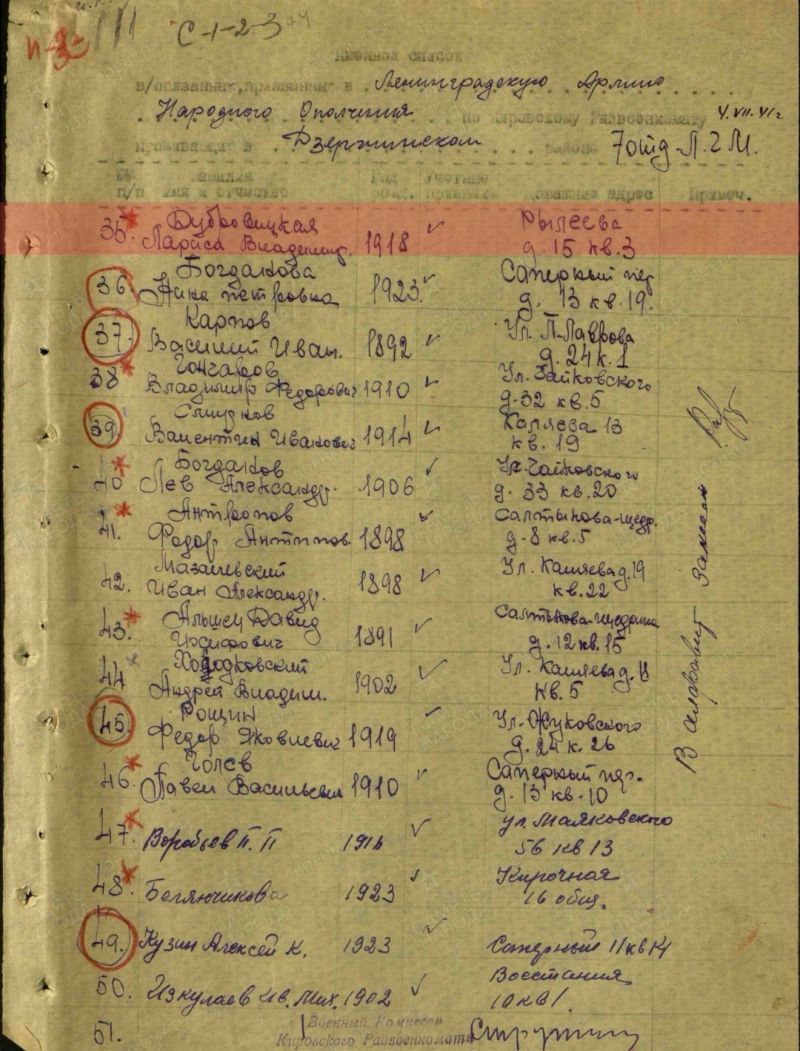 С-1-2-3
Именной список
в/обязанных, призванных в Ленинградскую Армию
Народного Ополчения по Кировскому Райвоенкомату 4.VII.41г
проживающих в Дзержинском районе 7отд Л.Г.М.
№№ Фамилия Год Учетные
п/п имя и отчество рожд. признаки Домашний адрес Примеч.
35. Дубровицкая Рылеева
Лариса Владимир. 1918 ✓ д. 15 кв. 3
36. Богданова Саперный пер
Нина Петровна 1923 ✓ д. 13 кв. 19.
37. Карпов Ул. П-Лаврова
Василий Иван. 1892 ✓ д. 24 к. 1
38. Гончаров Ул. Чайковского
Владимир Федорович 1910 ✓ д. 32 кв. 5
39. Каляева 13
Валентин Иванович 1914 ✓ кв. 19
40 Богданов Ул. Чайковского
Лев Александр. 1906 ✓ д. 33 кв. 20
41. Антропов Салтыкова-Щедр.
Федор Антипов. 1898 ✓ д. 8 кв. 5
42. Ул. Каляева д. 19
Иван Александр. 1898 ✓ кв. 22
43. Давид Салтыкова-Щедрина
Иосифович 1891 ✓ д. 12 кв. 15
44 Ходковский Ул. Каляева д. 18
Андрей Владим. 1902 ✓ кв. 5
45. Рощин Ул. Жуковского
Федор Яковлевич 1919 ✓ д. 24 к. 26
46. Голев Саперный пер.
Павел Васильевич 1910 ✓ д. 13 кв. 10
47. Воробьев П. П ✓ ул. Маяковского
56 кв 13
48. Белянчикова 1923 ✓ Кирочная
16 общ.
49. Кузин Алексей К. 1923 ✓ Саперный 11 кв 14
50. Изкулаев Ив. Мих. 1902 ✓ Восстания
10 кв 1
51.
Военный Комиссар
Кировского Райвоенкомата